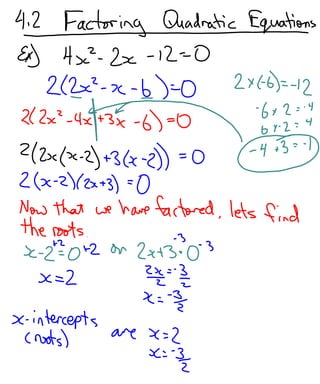 4.2 Factoring Quadratic Equations
Ex) 4x²-2x-12=0
2(2x²-x-6)=0
2x(-6)=-12
-6x2=-4
6x-2=4
-4+3=-1
2(2x²-4x+3x-6)=0
2(2x(x-2)+3(x-2))=0
2(x-2)(2x+3)=0
Now that we have factored, lets find
the roots
x-2+2=0+2 or 2x+3-3=0-3
x=2
2x/2=-3/2
x=-3/2
x-intercepts
(roots)
are x=2
x=-3/2